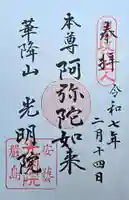 奉拝
令和七年
二月十四日
本尊阿弥陀如来
華降山光明院
安藝
嚴島